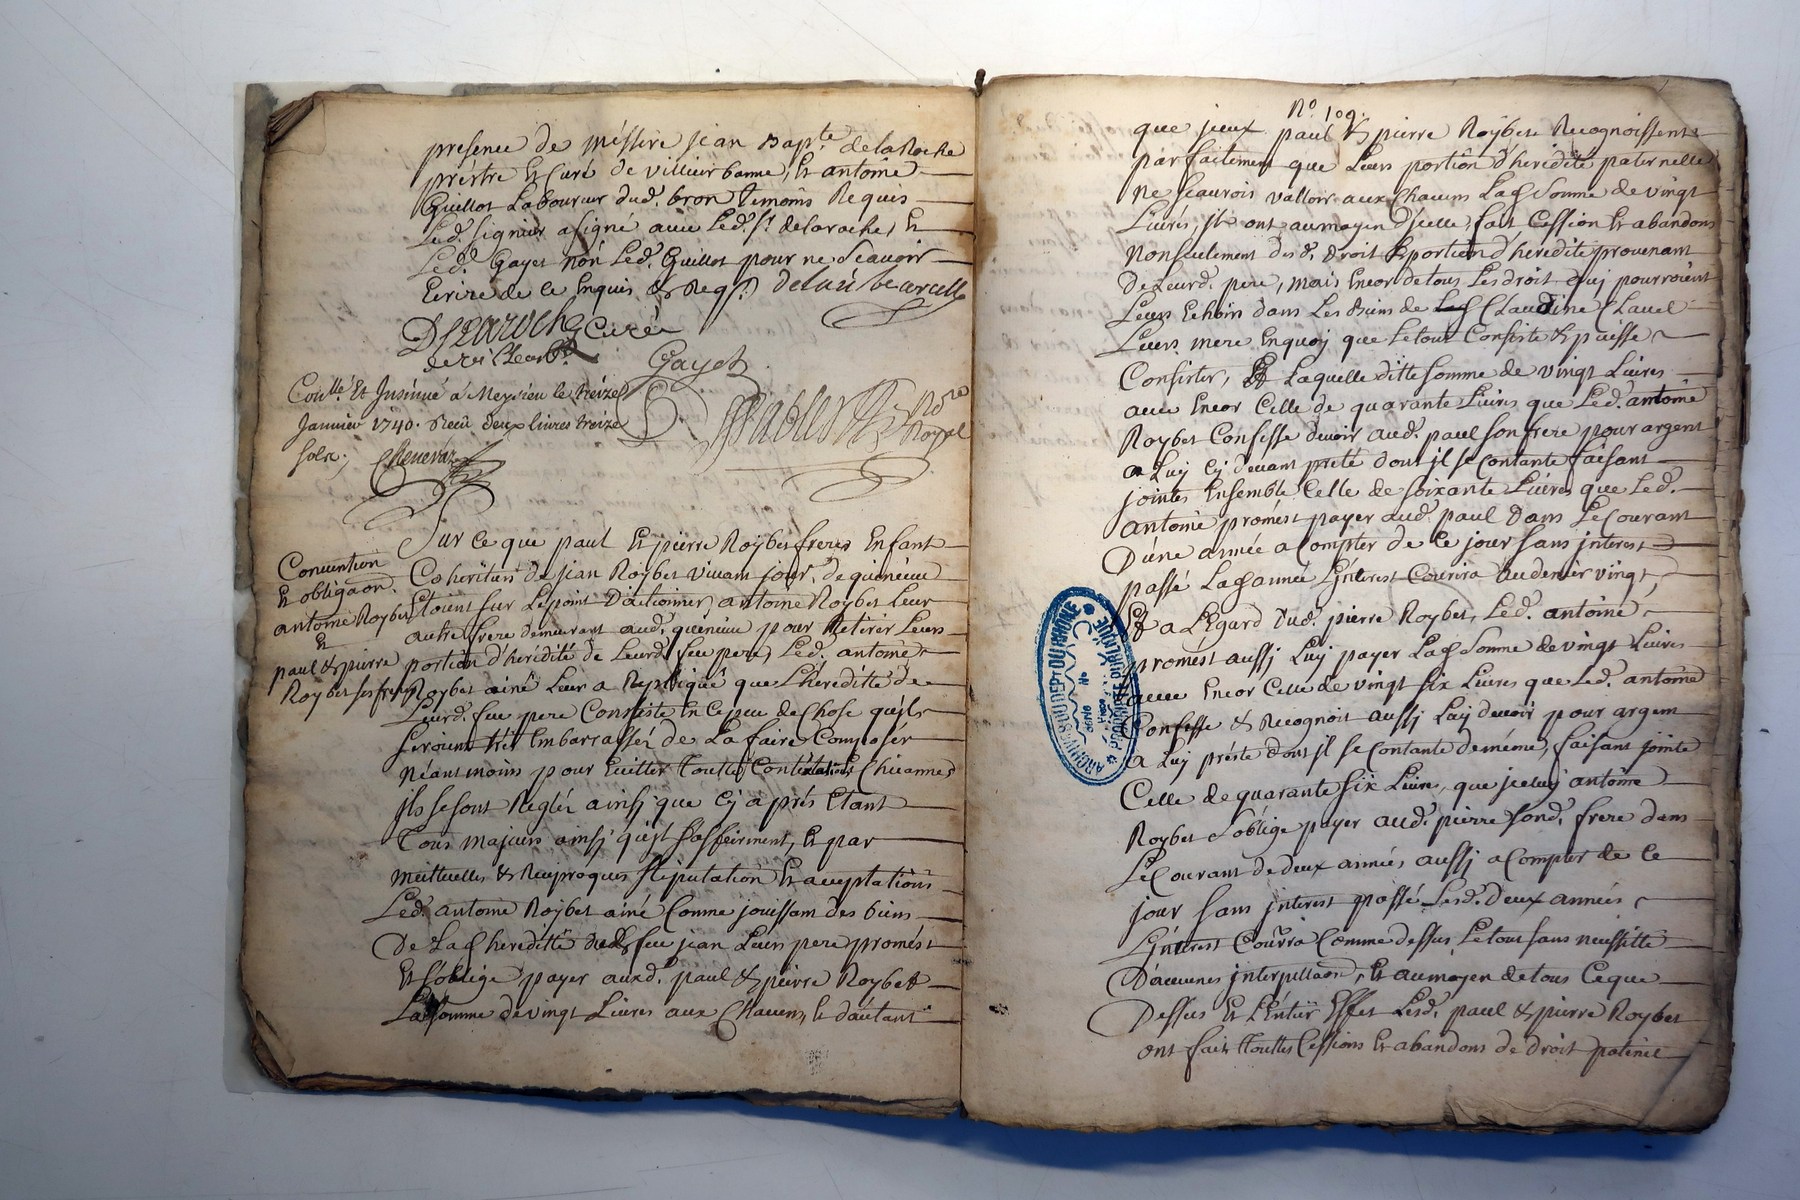 presence de méssire jean Bapte. delaRoche
prestre Et Curé de villeurbanne, Et antoine
Guillot Laboureur dud. bron temoins Requis
Led. seigneur a signé avec Led. sr. delaroche, Et
Led. Gayet non Led. Guillot pour ne sçavoir
Ecrire de ce Enquis & Reqs.
DeLaroche Curé
Gayet
Royal
Conllé. Et Insinué à Meyzieu le treize
Janvier 1740. Reçu deux livres treize
sols.
Convention
Et obligaon.
antoine Roybet
Et
paul & pierre
Roybet ses freres
Sur ce que paul Et pierre Roybet freres Enfant
Coheritiers de jean Roybet vivant jour. de
Etoient sur Le point D'actionner antoine Roybet Leur
autre frere demeurant aud. pour Retirer Leurs
portion d'hérédité de Leurd. feu pere, Led. antoine
Roybet ainé Leur a Repliqué que L'heredité de
Leurd. feu pere Consiste En ce peu de Chose qu'ils
seroient trés Embarrassér de La faire Composér
Néantmoins pour Eviter touttes Contestations Chicannes
jls se sont Reglér ainsj que cj aprés Etant
Tous majeurs ainsj qu'jl s'affeirment, Et par
mutuelles & Reciproques stipulation Et acceptations
Led. antoine Roybet ainé Comme jouissant des biens
De Lad. heredité dud. feu jean Leurs pere promést
Et s'oblige payer auxd. paul & pierre Roybet
La somme de vingt Livres aux Chacuns, Et d'autant
No. 109.
que jceux paul & pierre Roybet Recognoissent
parfaitement que Leurs portion d'heredité paternelle
ne sçaurois valloir aux Chacuns Lad. Somme de vingt
Livres, jls ont au moyen D'jcelle, fait Cession Et abandons
Non seulement desd. droit & portion d'heredité provenant
De Leurd. pere, mais Encor de tous Les droit quj pourroient
Leurs Echoirs dans Les Biens de Claudine Clavel
Leurs mere En quoj que Le tout Consiste & puisse
Consister, Et Laquelle ditte somme de vingt Livres
avec Encor Celle de quarante Livres que Led. antoine
Roybet Confesse devoir aud. paul son frere pour argent
a Luj cj devant preté dont jl se Contante faisant
jointes Ensemble Celle de soixante Livres que Led.
antoine promést payer aud. paul Dans Le Courant
D'une année a Compter de Ce jour sans jnterest
passé Lad. année L'jnterest Courira au denier vingt,
Et a L'Egard dud. pierre Roybet, Led. antoine
promést aussj Luj payer Lad. Somme de vingt Livres
avec Encor Celle de vingt six Livres que Led. antoine
Confesse & Recognoit aussj Luj devoir pour argent
a Luj préste dont jl se Contante de méme, faisant jointe
Celle de quarante six Livre, que jceluj antoine
Roybet s'oblige payer aud. pierre sond. frere dans
Le Courant de deux années aussj a Compter de Ce
jour sans jnterest passé Lesd. deux années
L'jnterest Courra Comme dessus Le tout sans necessitté
D'aucunes jnterpellaon, Et au moyen de tous Ce que
Dessus Et L'Entiër Effet Lesd. paul & pierre Roybet
ont fait touttes Cessions Et abandons de droit
ARCHIVES DU DEPT. DU RHONE
PROPRIETE PUBLIQUE